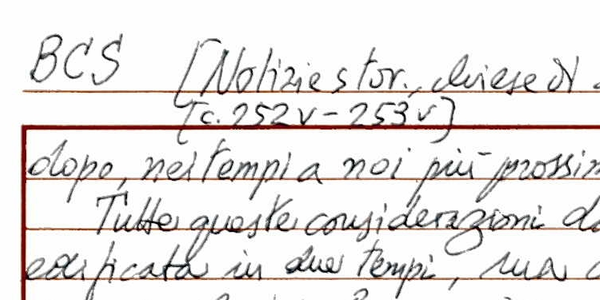 BCS [Notizie stor., chiese di
[c. 252v - 253v]
dopo, nei tempi a noi più prossim
Tutte queste considerazioni da
edificata in due tempi, una